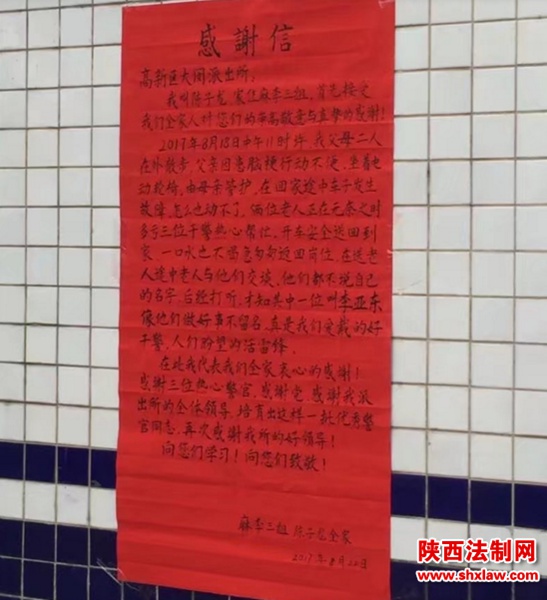 感謝信
高新区大闫派出所:
我叫陈子龙,家住麻李三组,首先接受
我们全家人对您们的崇高敬意与真挚的感谢!
2017年8月18日中午11时许,我父母二人
在外散步,父亲因患脑梗行动不便,坐着电
动轮椅,由母亲管护,在回家途中车子发生
故障,怎么也动不了,俩位老人正在无奈之时
多亏三位干警热心帮忙,开车安全送回到
家,一口水也不喝急匆匆返回岗位,在送老
人途中老人与他们交谈,他们都不说自己
的名字,后经打听,才知其中一位叫李亚东
像他们做好事不留名,真是我们爱戴的好
干警,人们盼望的活雷锋。
在此我代表我们全家衷心的感谢!
感谢三位热心警官,感谢党,感谢我派
出所的全体领导,培育出这样一批优秀警
官同志,再次感谢我所的好领导!
向您们学习!向您们致敬!
麻李三组 陈子龙全家
2017年8月20日
陕西法制网
www.shxlaw.com